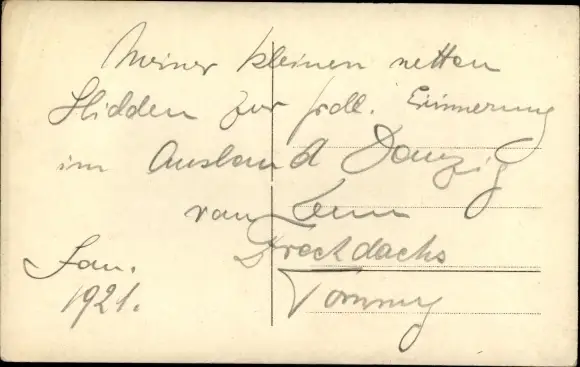 Meiner kleinen netten
Hidden zur frdl. Erinnerung
im Ausland Danzig
von
Frechdachs
Tommy
Jan.
1921.